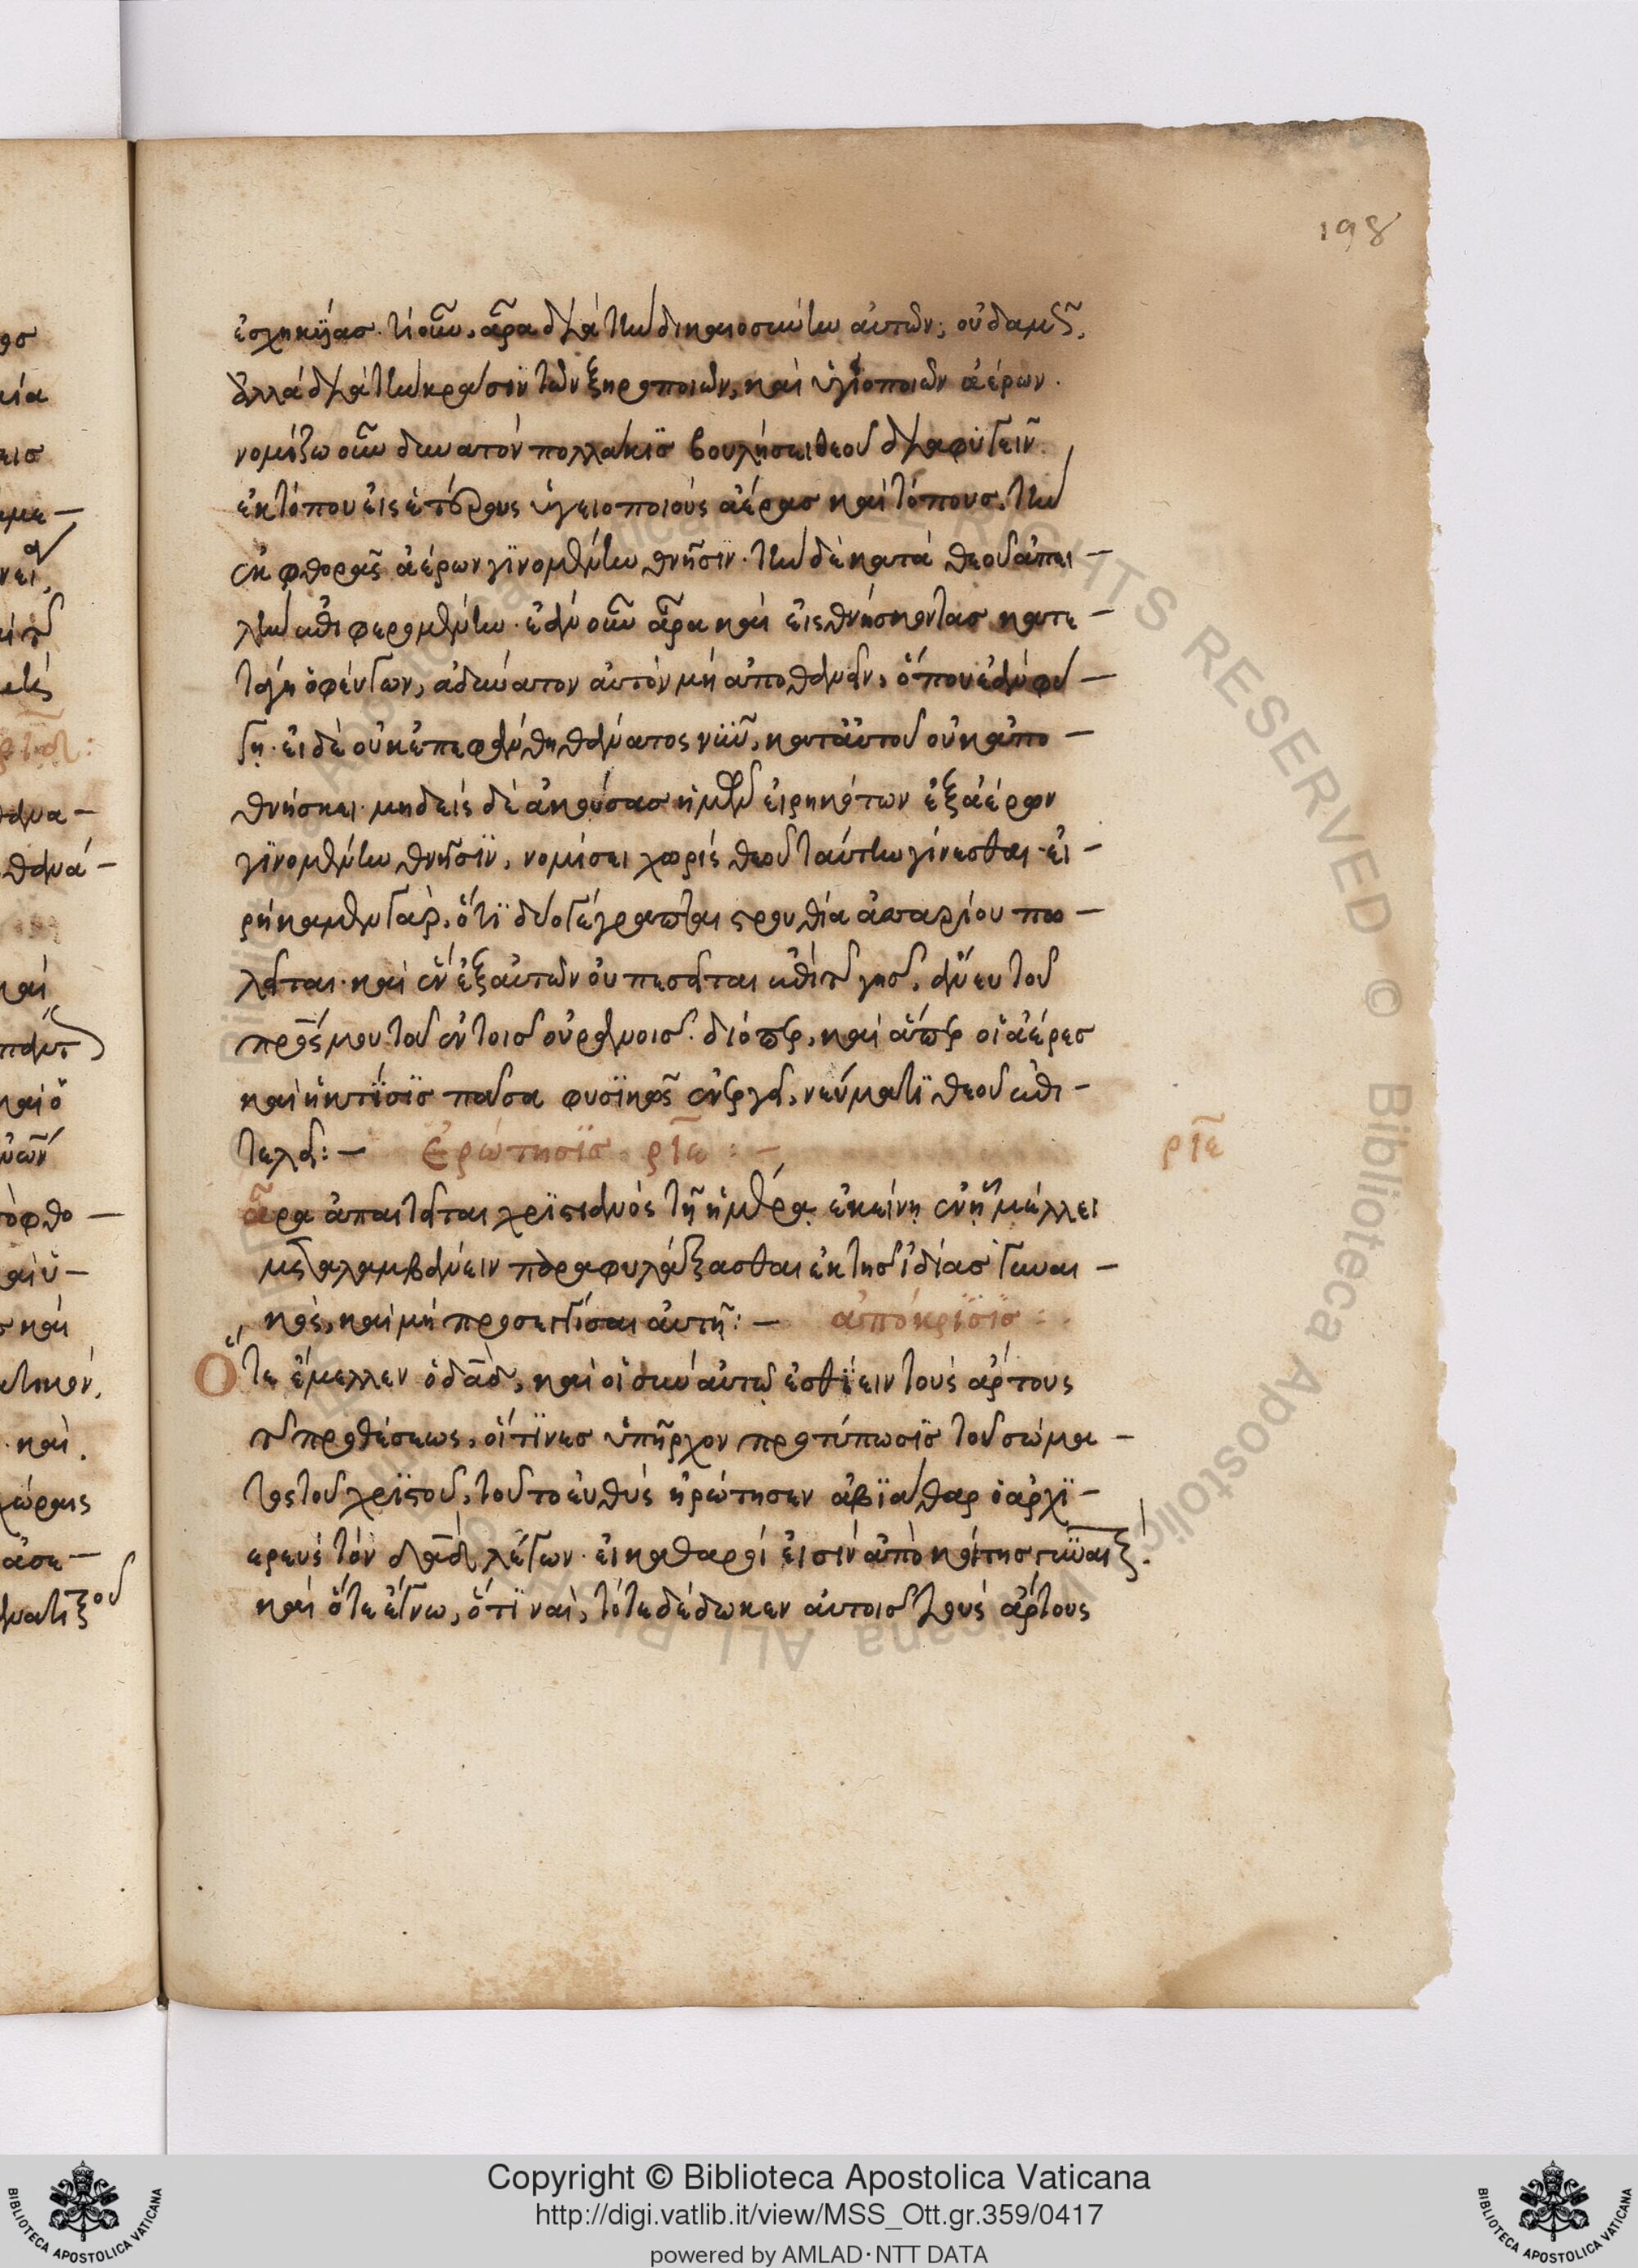 198
ἐσχηκυίας. τί οὖν, ἆρα διὰ τὴν δικαιοσύνην αὐτῶν; οὐδαμῶς.
ἀλλὰ διὰ τὴν κράσϊν τῶν ξηροποιῶν, καὶ ὑγιοποιῶν ἀέρων.
νομίζω οὖν δυνατόν πολλάκϊς βουλήσει θεοῦ διαφυγεῖν
ἐκ τόπου εἰς ἑτέρους ὑγειοποιούς ἀέρας καὶ τόπους, τὴν
ἐκ φθορᾶς ἀέρων γϊνομένην θνῆσϊν. τὴν δὲ κατὰ θεοῦ ἀπει-
λὴν ἐπιφερομένην. ἐὰν οὖν ἆρα καὶ εἰς θνήσκοντας κατε-
τάγη ὁ φεύγων, ἀδύνατον αὐτὸν μὴ ἀποθανεῖν, ὅπου ἐὰν φύ-
γη. εἰ δὲ οὐκ ἐπεφάνθη θάνατος νῦν, κατ' αὐτοῦ οὐκ ἀπο-
θνήσκει. μηδεὶς δὲ ἀκούσας ἡμῶν εἰρηκότων ἐξ ἀέρων
γϊνομένην θνῆσϊν, νομίσει χωρὶς θεοῦ ταύτην γίνεσθαι. εἰ-
ρήκαμεν γάρ, ὅτϊ δύο γέγραπται στρουθία ἀσσαρίου πω-
λεῖται. καὶ ἓν ἐξ αὐτῶν οὐ πεσεῖται ἐπὶ τῆς γῆς, ἄνευ τοῦ
πατρός μου τοῦ ἐν τοῖς οὐρανοῖς. διόπερ, καὶ ἅπερ οἱ ἀέρες
καὶ ἡ κτίσϊς πᾶσα φυσϊκῶς ἐνεργεῖ, νεύματϊ θεοῦ ἐπι-
τελεῖ:— Ἐρώτησϊς ριε :— ριε
ἆρα ἀπαιτεῖται χρϊστιανὸς τῇ ἡμέρα ἐκείνῃ ἐν ᾗ μέλλει
μεταλαμβάνειν παραφυλάξασθαι ἐκ τῆς ἰδίας γυναι-
κὸς, καὶ μὴ προσεγγίσαι αὐτῇ:— ἀπόκρϊσϊς:
Ὅτε ἔμελλεν ὁ δαδ, καὶ οἱ σὺν αὐτῷ ἐσθίειν τοὺς ἄρτους
τῆς προθέσεως, οἵτϊνες ὑπῆρχον προτύπωσϊς τοῦ σώμα-
τος τοῦ χρϊστοῦ, τοῦτο εὐθὺς ἠρώτησεν ἀβϊάθαρ ὁ ἀρχϊ-
ερεὺς τὸν δαδ λέγων. εἰ καθαροί εἰσίν ἀπὸ κοίτης γυναικός.
καὶ ὅτε ἔγνω, ὅτϊ ναὶ, τότε δέδωκεν αὐτοῖς τοὺς ἄρτους
Copyright © Biblioteca Apostolica Vaticana
http://digi.vatlib.it/view/MSS_Ott.gr.359/0417
powered by AMLAD·NTT DATA